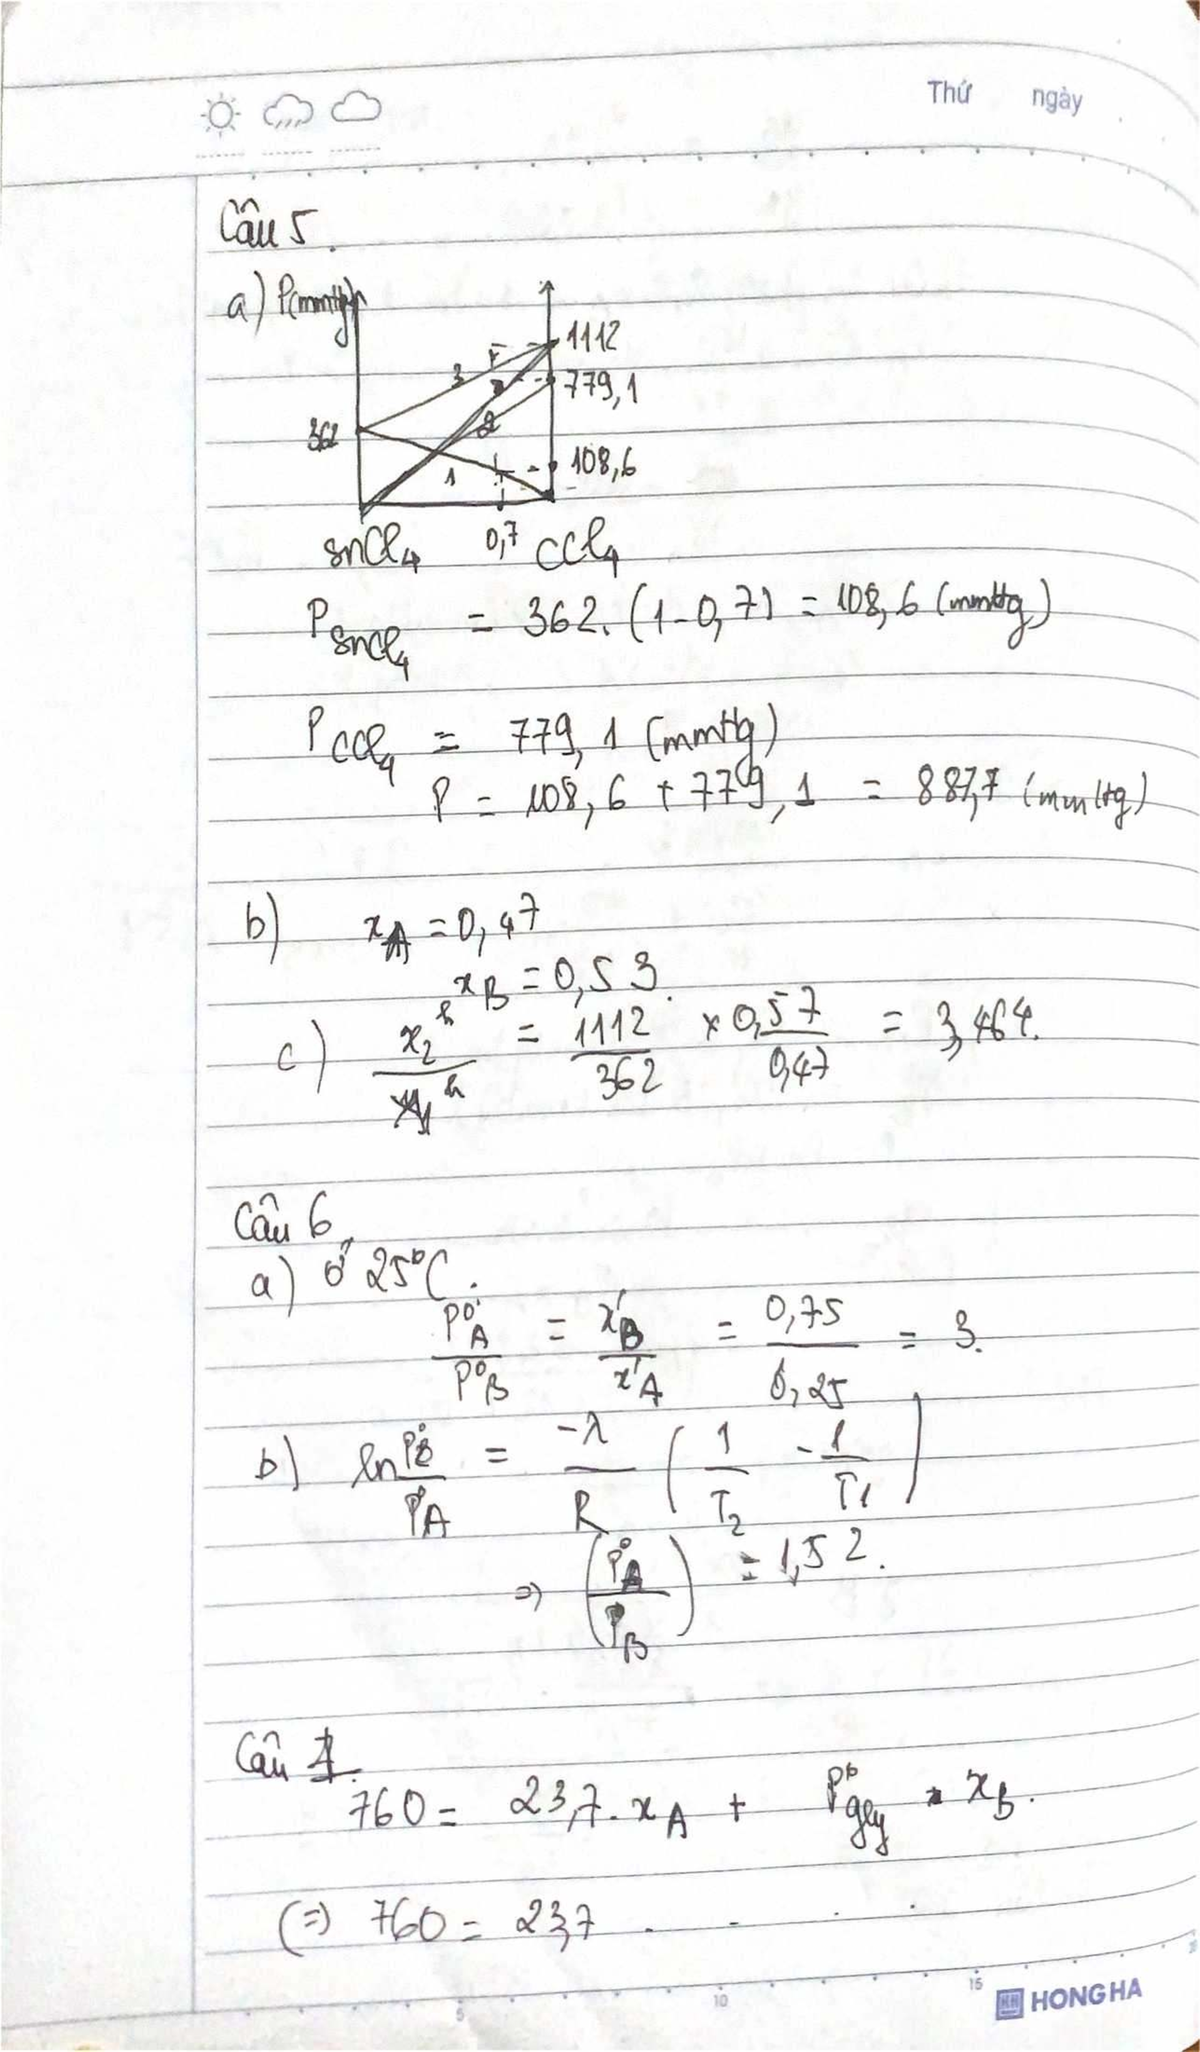 Thứ ngày
Câu 5.
a) P(mmHg)
1112
3
779,1
2
362
1
108,6
SnCl₄ 0,7 CCl₄
P SnCl₄ = 362. (1-0,7) = 108,6 (mmHg)
P CCl₄ = 779,1 (mmHg)
P = 108,6 + 779,1 = 887,7 (mmHg)
b) x_A = 0,47
x_B = 0,53.
c) x₂^h / x₁^h = 1112/362 × 0,57/0,47 = 3,464.
Câu 6.
a) ở 25°C.
P°_A / P°_B = x'_B / x'_A = 0,75 / 0,25 = 3.
b) ln P°_B / P_A = -λ / R ( 1/T₂ - 1/T₁ )
=> ( P°_A / P_B ) = 1,52.
Câu 1.
760 = 23,7. x_A + P°_gly . x_B.
(=) 760 = 23,7
5 10 15
HONG HA